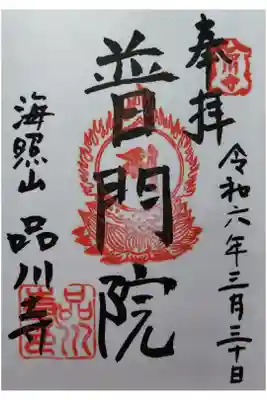 奉拝
令和六年三月三十日
普門院
海照山 品川寺